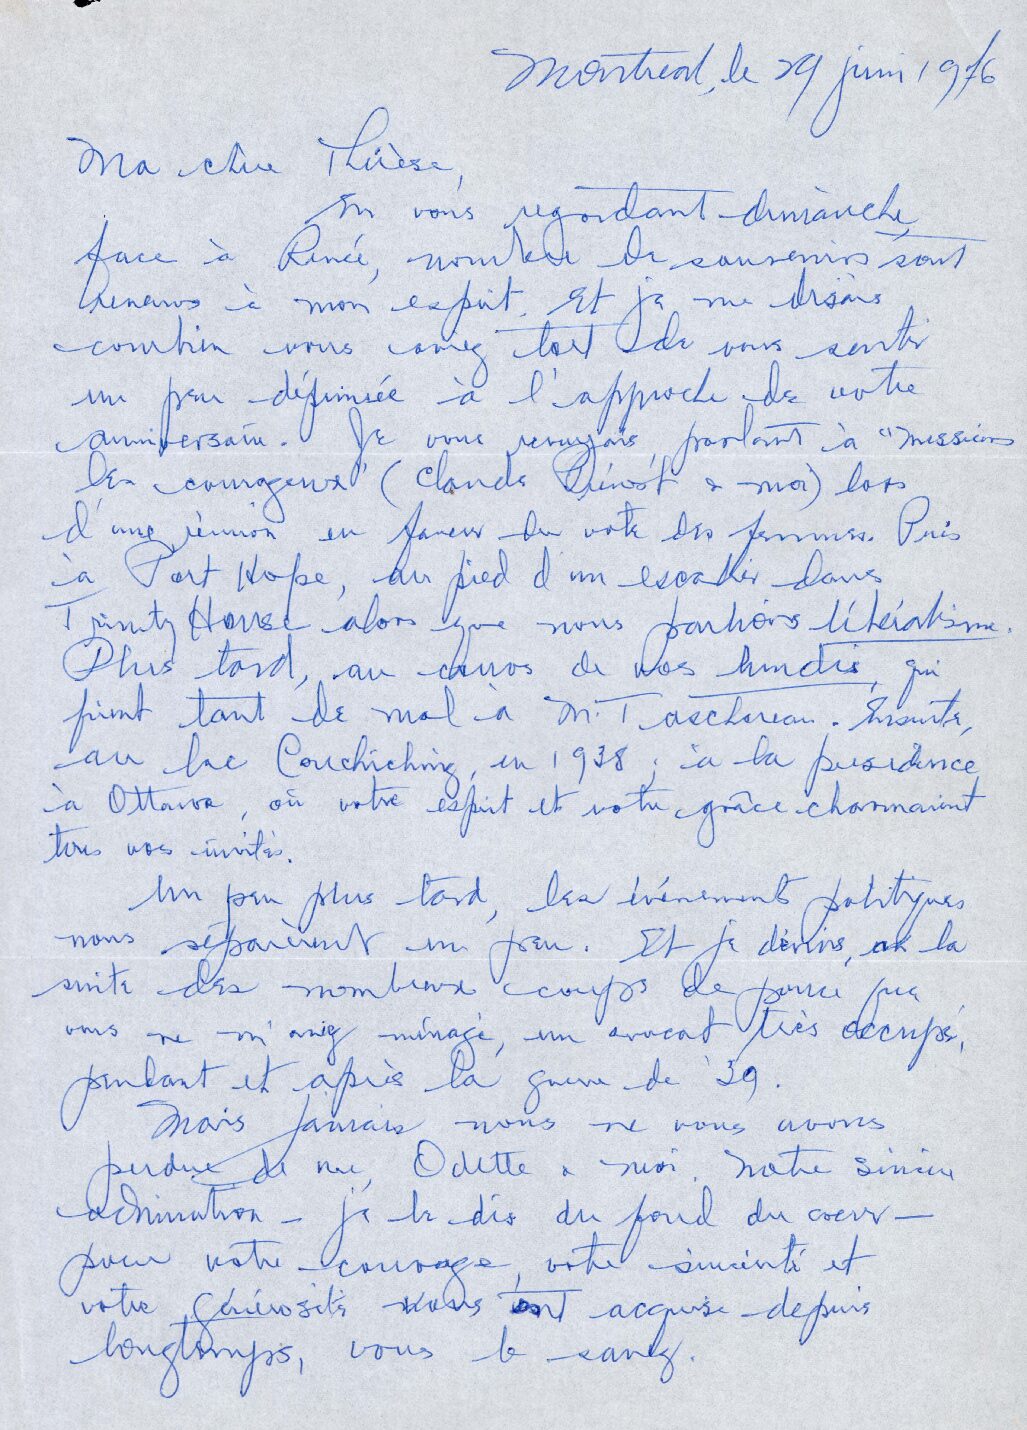 Montréal, le 29 juin 1976
Ma chère Thérèse,
En vous regardant dimanche,
face à Renée, nombre de souvenirs sont
revenus à mon esprit. Et je me disais
combien vous avez tort de vous sentir
un peu déprimée à l'approche de votre
anniversaire. Je vous revoyais, parlant à "messieurs
les courageux" (Claude Prévost & moi) lors
d'une réunion en faveur du vote des femmes. Puis
à Port Hope, au pied d'un escalier dans
Trinity House alors que nous parlions libéralisme.
Plus tard, au cours de vos lundis, qui
firent tant de mal à M. Taschereau. Ensuite,
au lac Couchiching, en 1938 ; à la présidence,
à Ottawa, où votre esprit et votre grâce charmaient
tous vos invités.
Un peu plus tard, les événements politiques
nous séparèrent un peu. Et je devins, à la
suite des nombreux coups de pouce que
vous ne m'aviez ménagé, un avocat très occupé,
pendant et après la guerre de '39.
Mais jamais nous ne vous avons
perdue de vue, Odette & moi. Notre sincère
admiration – je le dis du fond du coeur –
pour votre courage, votre sincérité et
votre générosité vous est acquise depuis
longtemps, vous le savez.